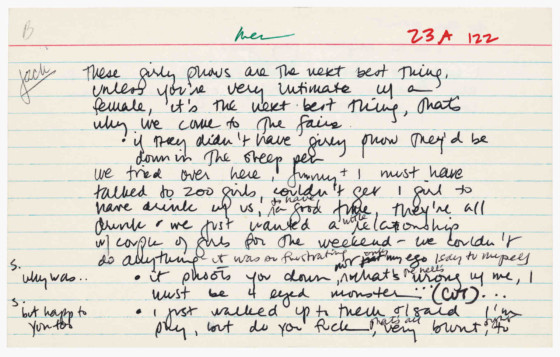 B men 23A 122
Jack
These girly shows are the next best thing,
unless you're very intimate w/ a
female, it's the next best thing, that's
why we come to the fairs
• if they didn't have girly show they'd be
down in the sheep pen
we tried over here, Jimmy + I must have
talked to 200 girls, couldn't get 1 girl to
have drink w/ us, to have a good time, they're all
drunk • we just wanted a little relationship
w/ couple of girls for the weekend - we couldn't
do anything it was on frustrating
my ego I say to myself
S. why was.. • it shoots you down, what's the hell's wrong w/ me, I
must be 4 eyed monster... (CUT)...
S. but happy to you too • I just walked up to them & said I'm
but do you fuck, that's all, very blunt, to